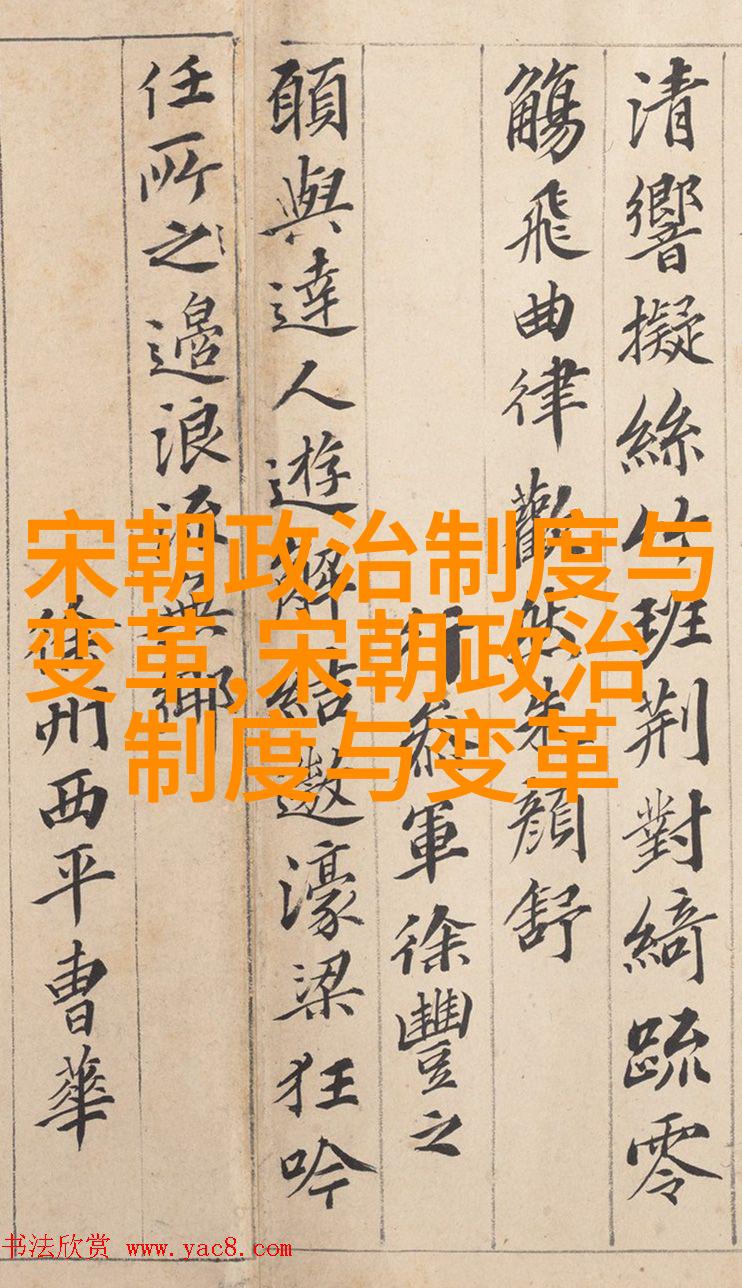 清響擬絲竹班荊對綺疏零
觴飛曲律歡然朱顏舒
行參軍徐豐之
願與達人遊解結遨濠梁狂吟
任所之邉浪流無鄉
徐州西平曹華
宋朝政治制度与
变革,宋朝政治
制度与变革
书法欣赏 www.yac8.com